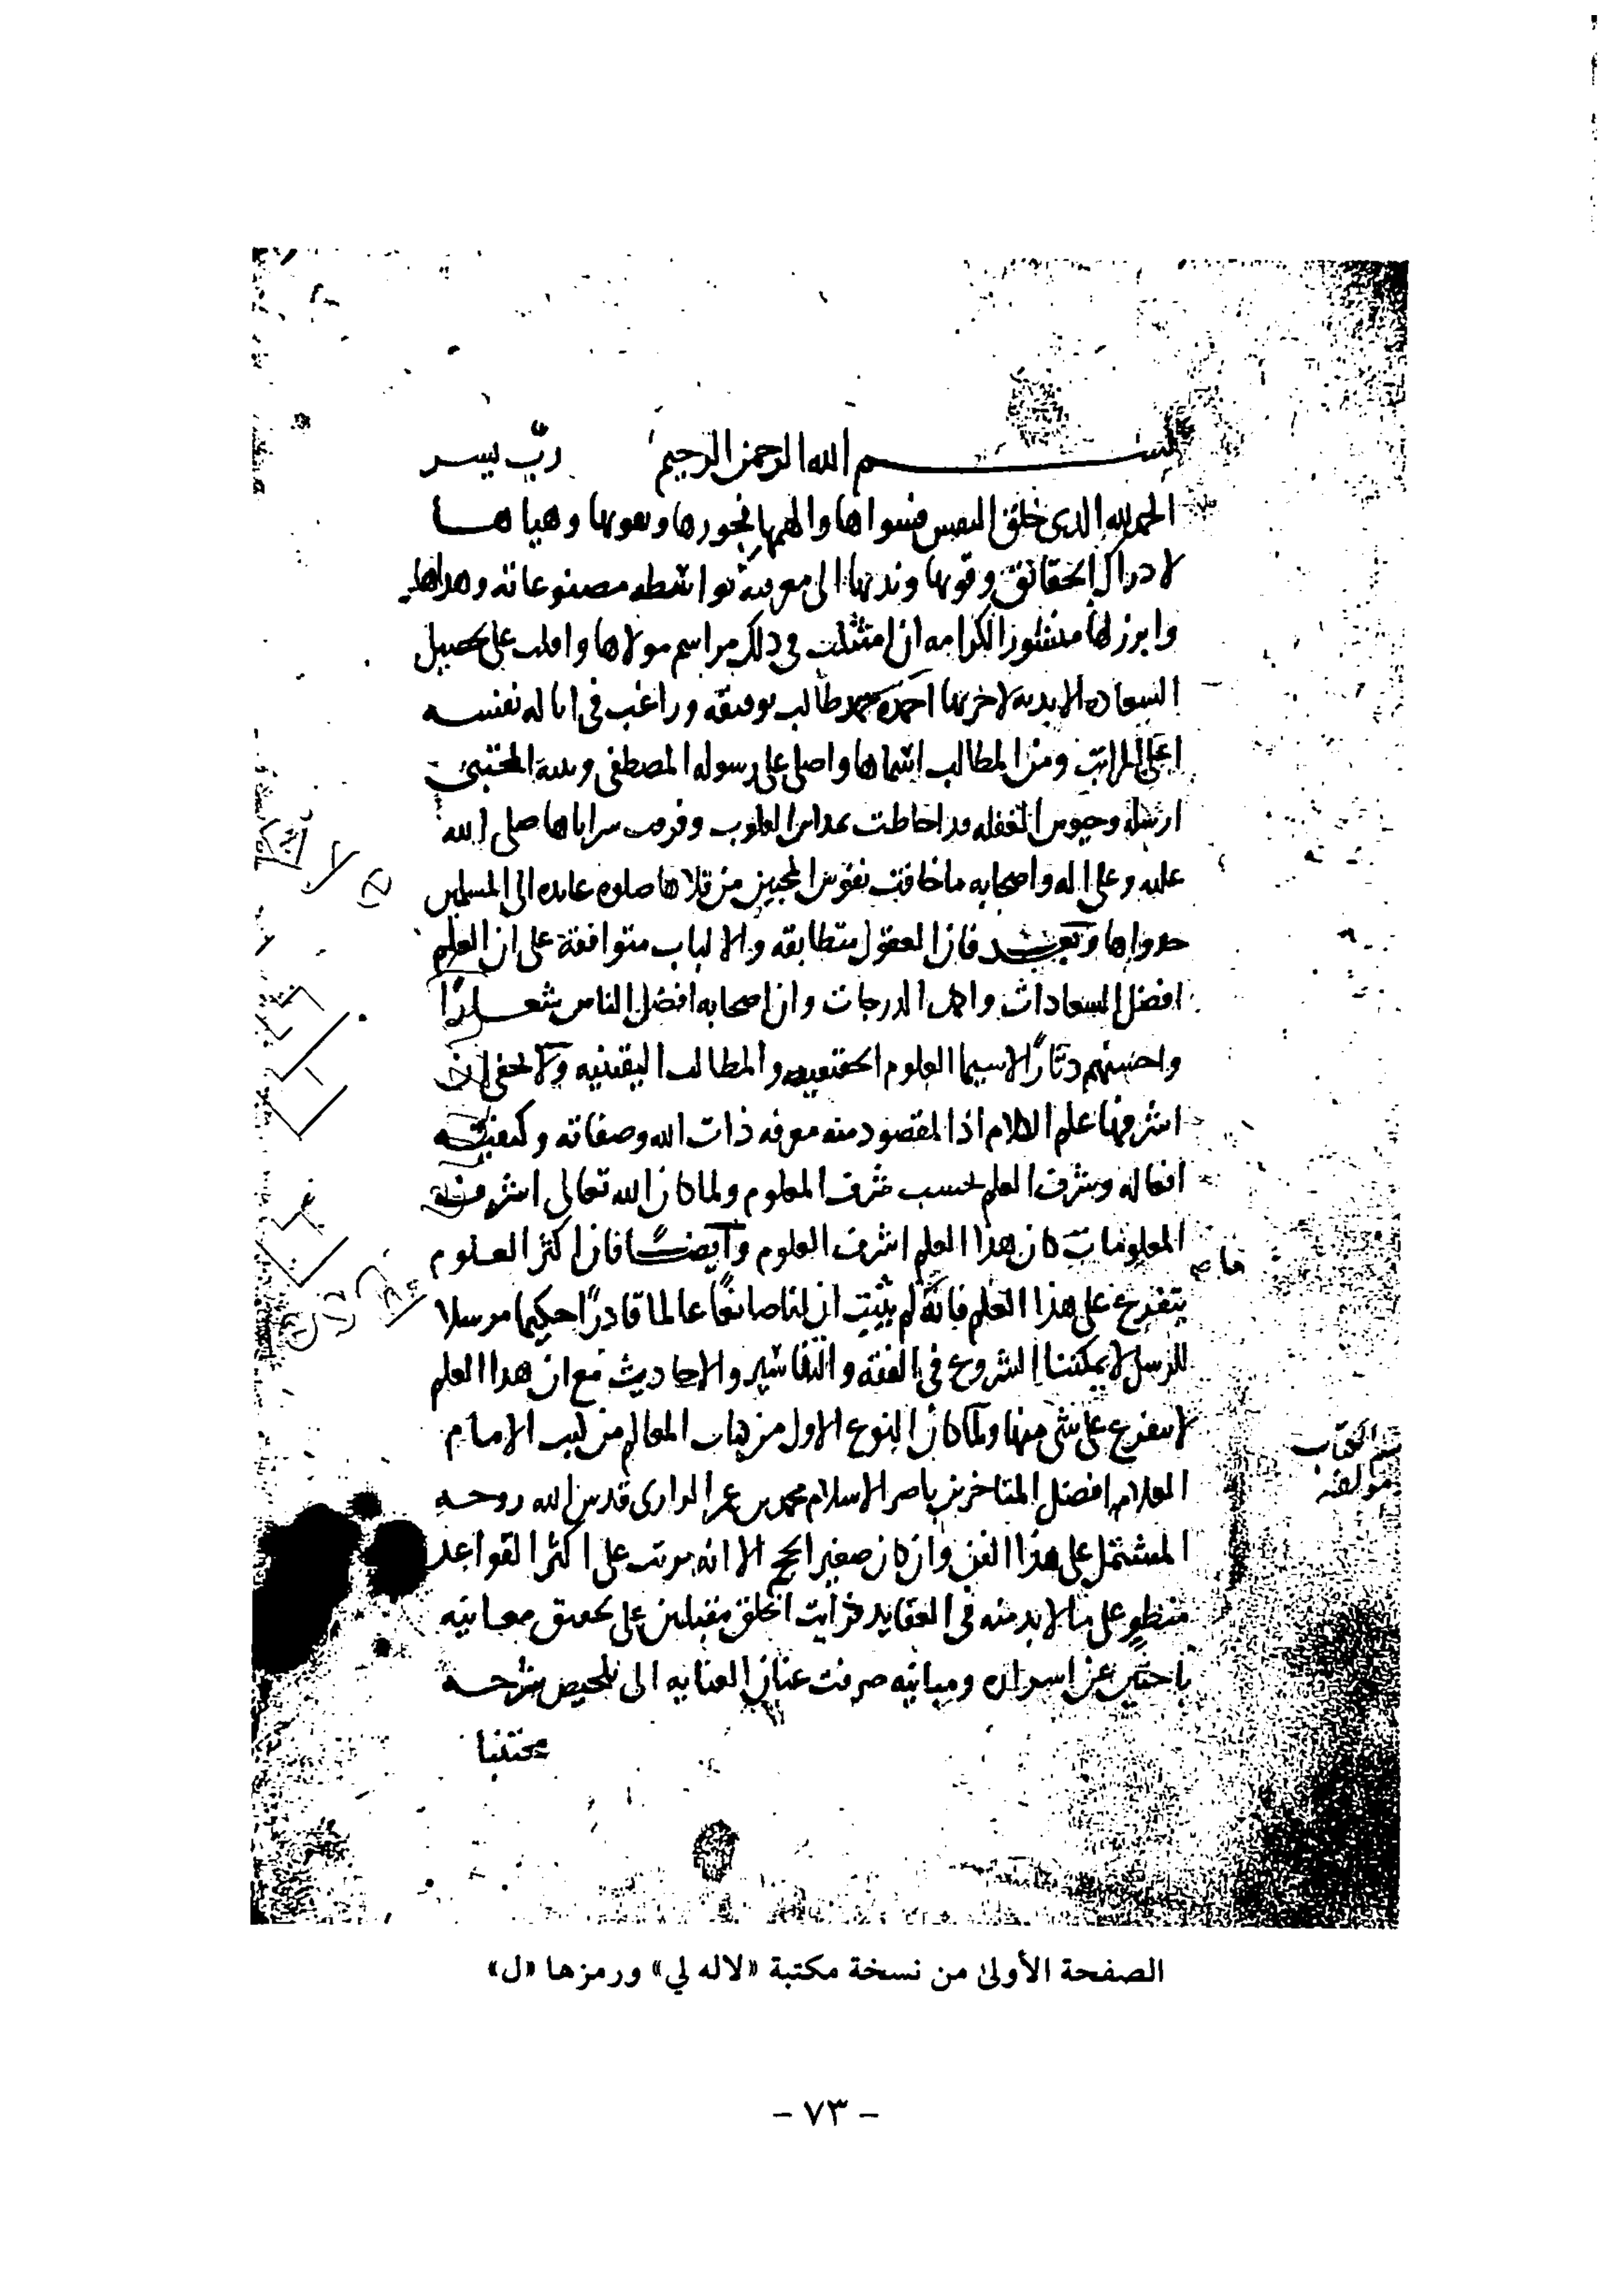 بسم الله الرحمن الرحيم رب يسر
الحمد لله الذى خلق النفس فسواها والهمها فجورها وتقوىها وهياها
لادراك الحقائق وقوىها وندبها الى معرفته بواسطه مصنوعاته وهداها
وابرز لها منشور الكرامه ان امتثلت فى ذلك مراسم مولاها واقبلت على تحصيل
السعاده الابديه لاخرىها احمده حمد طالب توفيقه وراغب فى اناله نفسه
اعلى المراتب ومن المطالب اسماها واصلى على رسوله المصطفى ونبيه المجتبى
ارسله وجيوش الغفله قد احاطت بمداين القلوب وفرقت سراياها صلى الله
عليه وعلى اله واصحابه ما خافت نفوس المحبين من قلاها صلوه عايده الى المسلمين
جدواها وبعد فان العقول متطابقة والالباب متوافقة على ان العلم
افضل السعادات واكمل الدرجات وان اصحابه افضل الناس شعارًا
واحسنهم دثارًا لاسيما العلوم الحقيقيه والمطالب اليقينيه ولا يخفى ان
اشرفها علم الكلام اذ المقصود منه معرفه ذات الله وصفاته وكيفية
افعاله وشرف العلم بحسب شرف المعلوم ولما كان الله تعالى اشرف
المعلومات كان هذا العلم اشرف العلوم وايضًا فان اكثر العلوم
يتفرع على هذا العلم فانه لم يثبت ان لنا صانعًا عالما قادرًا حكيما مرسلا
للرسل لا يمكننا الشروع فى الفقه والتفاسير والاحاديث مع ان هذا العلم
لا يتفرع على شى منها ولما كان النوع الاول من كتاب المعالم من كتب الامام
العلام افضل المتاخرين ناصر الاسلام محمد بن عمر الرازى قدس الله روحه
المشتمل على هذا الفن وان كان صغير الحجم الا انه مرتب على اكثر القواعد
منطو على ما لا بد منه فى العقايد فرايت الخلق مقبلين على تحقيق معانيه
باحثين عن اسراره ومبانيه صرفت عنان العنايه الى تلخيص شرحه
مجتنبا
الصفحة الأولى من نسخة مكتبة «لاله لي» ورمزها «ل»
- ٧٣ -